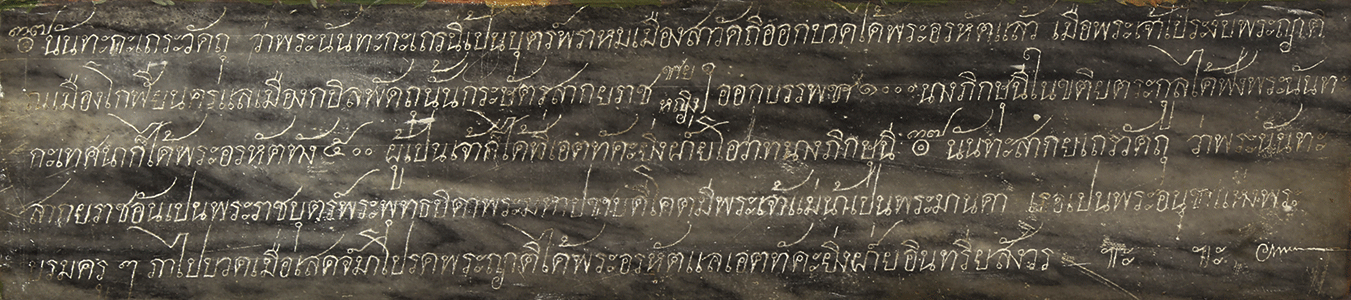 ๏ นันทะกะเถระวัดถุ ว่าพระนันทะกะเถรนี้เป็นบุตร์พราหมเมืองสาวัดถีออกบวดได้พระอรหัตแล้ว เมื่อพระเจ้าไประงับพระญาต
ณเมืองโกฬิยนครแลเมืองกบิลพัดถุนั้นกระษัตร์สากยราช ชาย หญิง ออกบรรพชา ๑๐๐๐ นางภิกษุนีในขติยตระกูลได้ฟังพระนันทะ
กะเทศนาก็ได้พระอรหัตทัง ๕๐๐ ผู้เป็นเจ้าก็ได้ที่เอตทัคะยิ่งฝ่ายโอวาทนางภิกษุนี ๏ นันทะสากยเถรวัดถุ ว่าพระนันทะ
สากยราชอันเป็นพระราชบุตร์พระพุทธบิดาพระมหาปชาบดีโคตมีพระเจ้าแม่น้าเป็นพระมานดา เธอเป็นพระอนุชาแห่งพระ
บรมครู ๆ ภาไปบวดเมื่อเสดจ์มาโปรดพระญาติได้พระอรหัตแลเอตทัคะยิ่งฝ่ายอินทรียสังวร